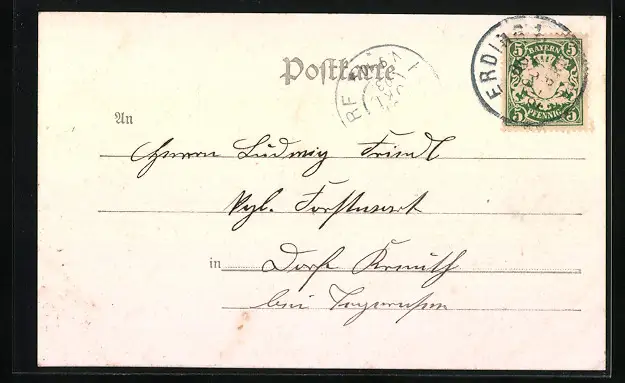 Postkarte
ERDING 1
5 BAYERN 5
5 PFENNIG 5
An
Herrn Ludwig Friedl
Kgl. Forstwart
in Dorf Kreuth
bei Tegernsee